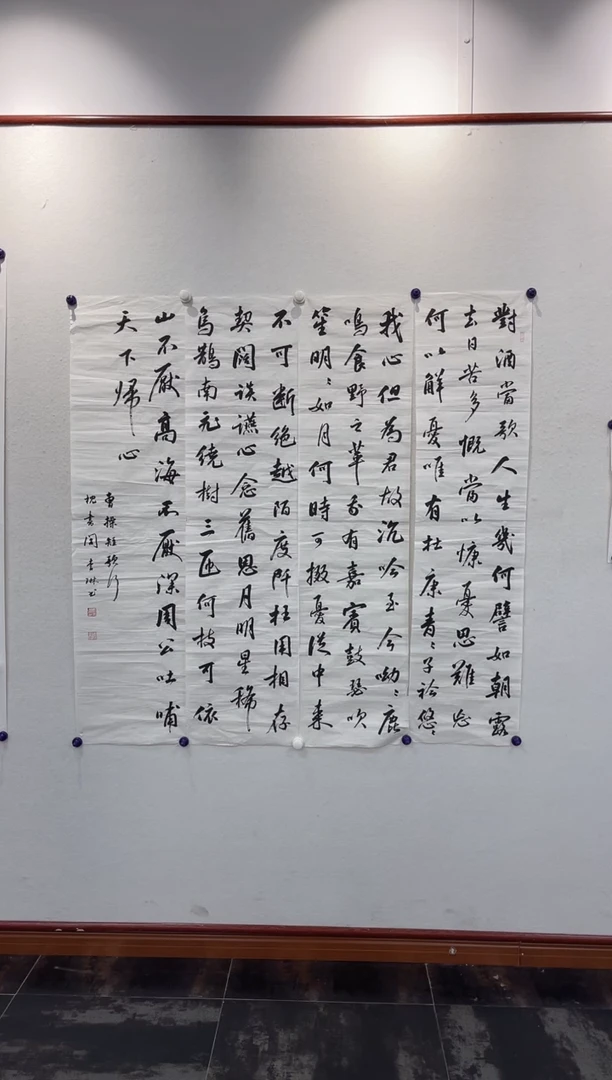 對酒當歌人生幾何譬如朝露
去日苦多慨當以慷憂思難忘
何以解憂唯有杜康青〻子衿悠〻
我心但為君故沉吟至今呦〻鹿
鳴食野之苹我有嘉賓鼓瑟吹
笙明〻如月何時可掇憂從中来
不可断絶越陌度阡枉用相存
契闊談讌心念舊恩月明星稀
烏鵲南飛繞樹三匝何枝可依
山不厭高海不厭深周公吐哺
天下歸心
曹操短歌行